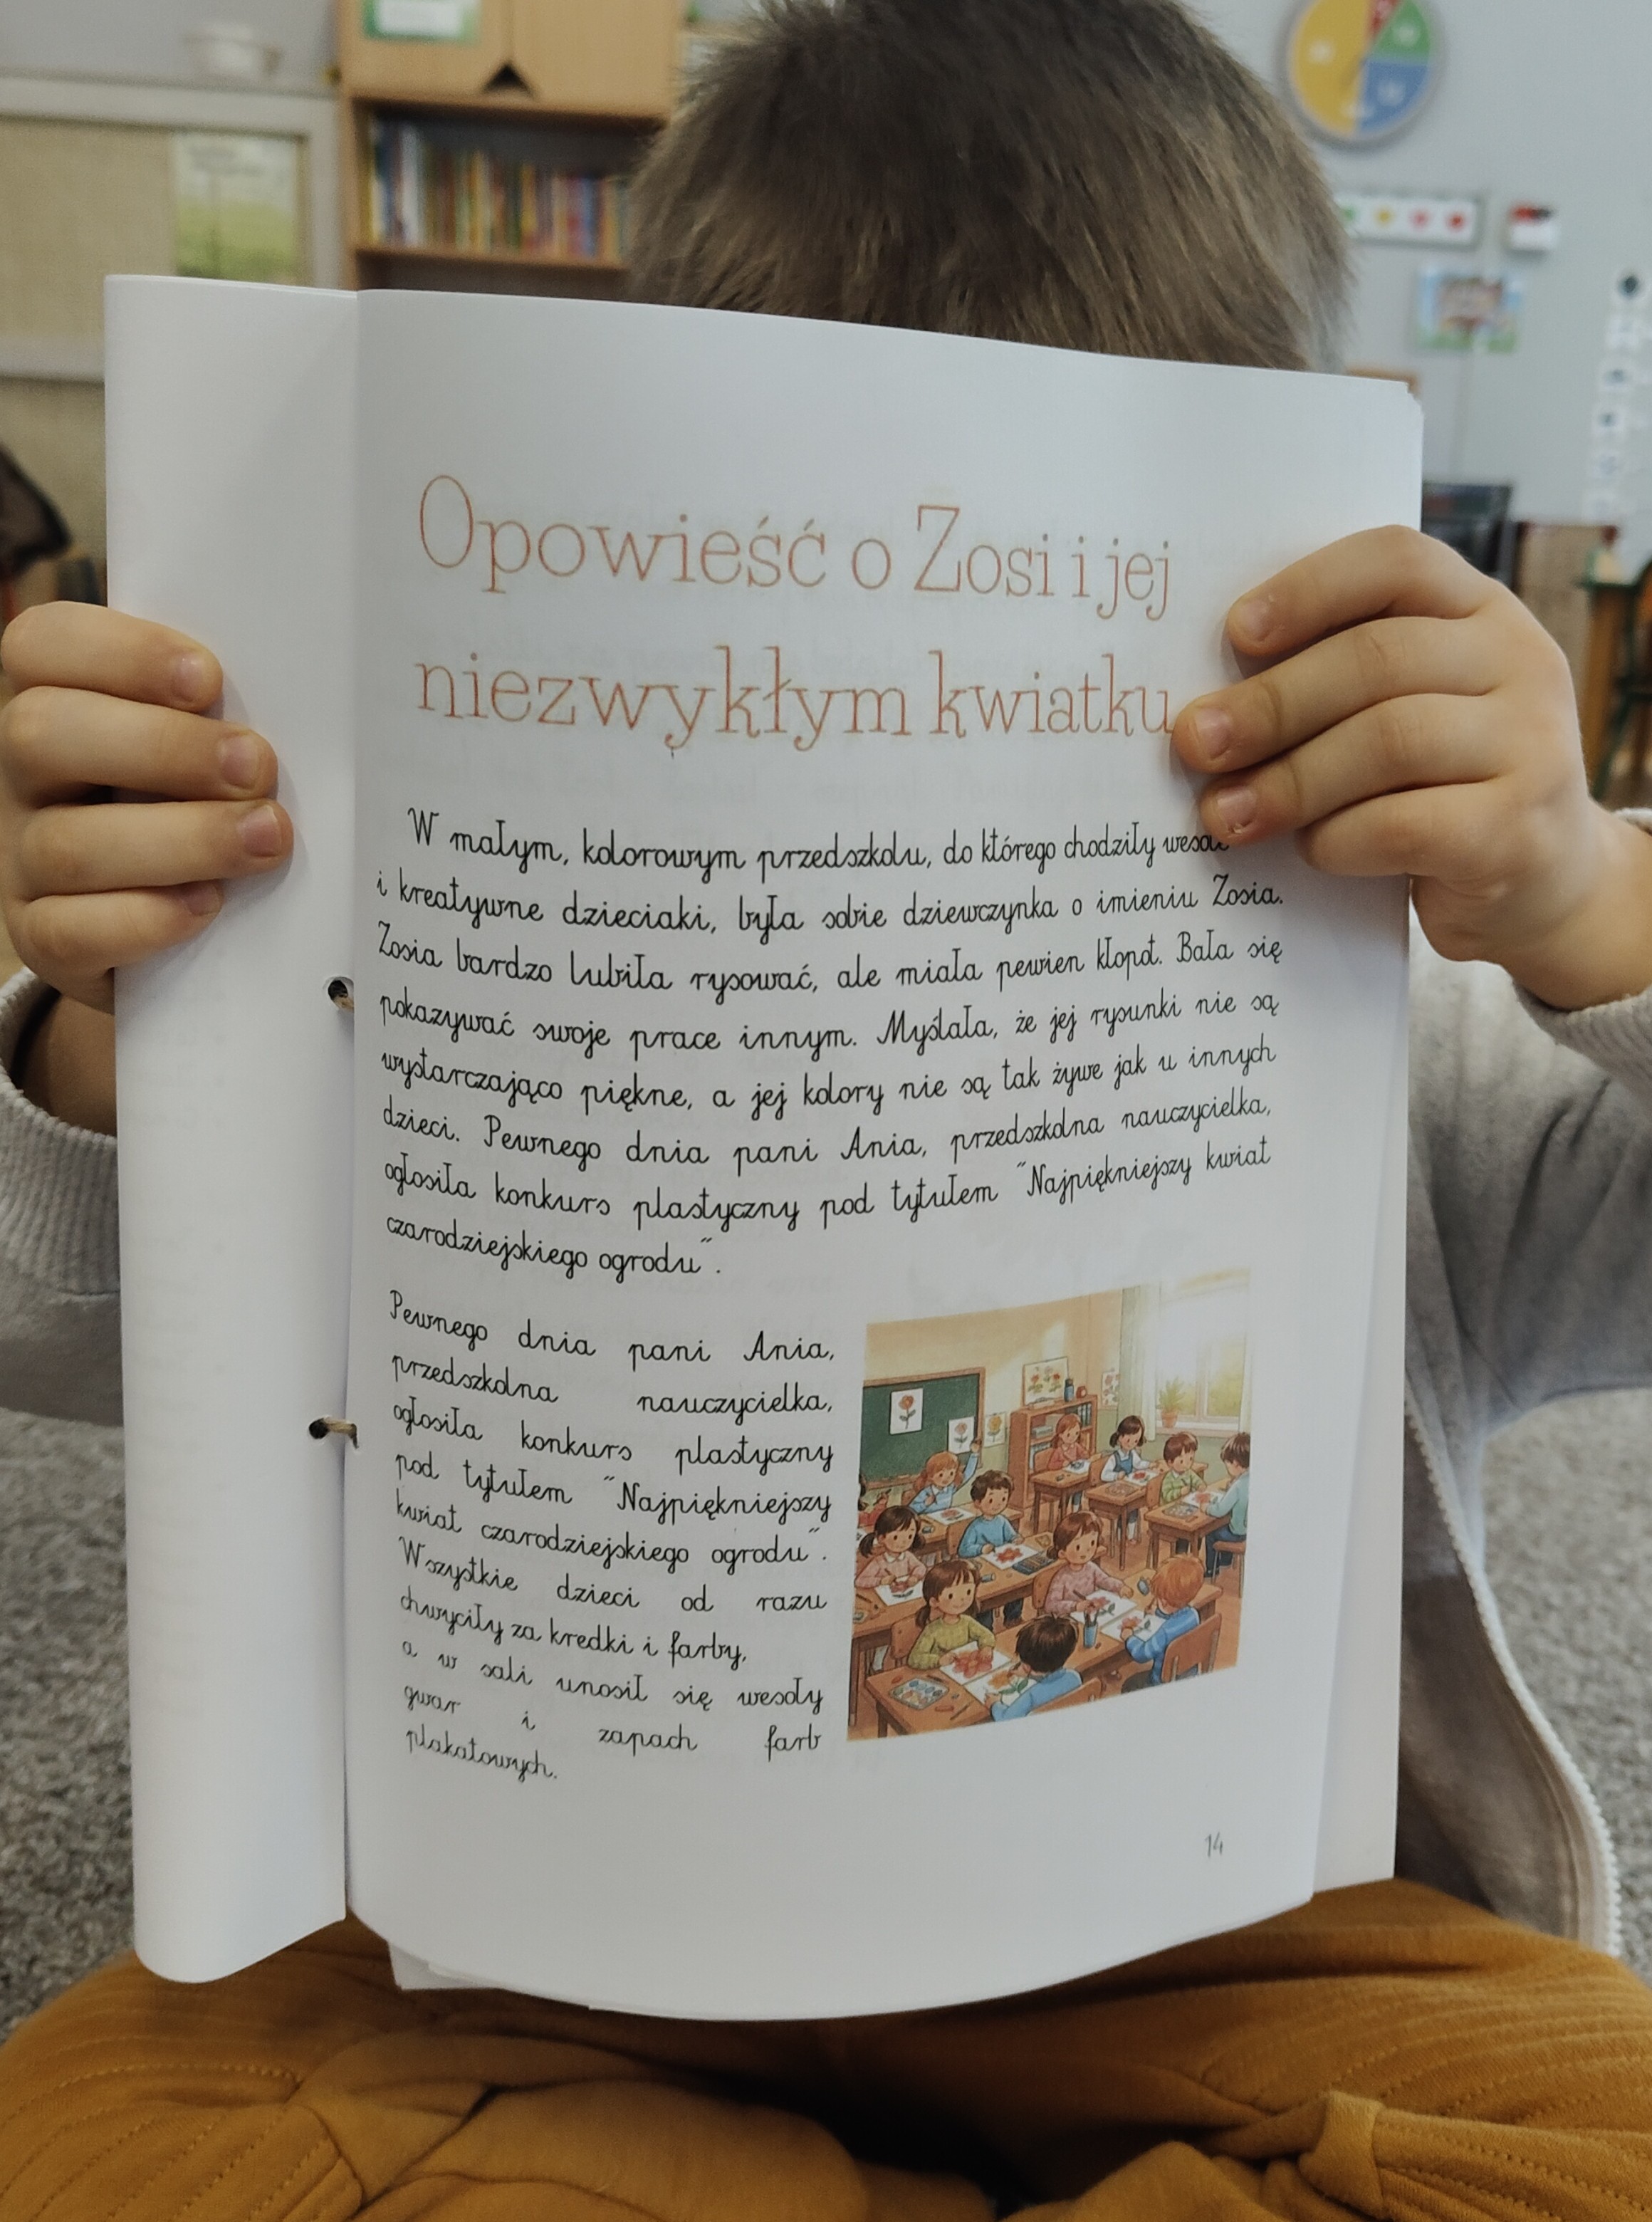 Opowieść o Zosi i jej
niezwykłym kwiatku
W małym, kolorowym przedszkolu, do którego chodziły
i kreatywne dzieciaki, była sobie dziewczynka o imieniu Zosia.
Zosia bardzo lubiła rysować, ale miała pewien kłopot. Bała się
pokazywać swoje prace innym. Myślała, że jej rysunki nie są
wystarczająco piękne, a jej kolory nie są tak żywe jak u innych
dzieci. Pewnego dnia pani Ania, przedszkolna nauczycielka,
ogłosiła konkurs plastyczny pod tytułem "Najpiękniejszy kwiat
czarodziejskiego ogrodu".
Pewnego dnia pani Ania,
przedszkolna nauczycielka,
ogłosiła konkurs plastyczny
pod tytułem "Najpiękniejszy
kwiat czarodziejskiego ogrodu".
Wszystkie dzieci od razu
chwyciły za kredki i farby,
a w sali unosił się wesoły
gwar i zapach farb
plakatowych.
14